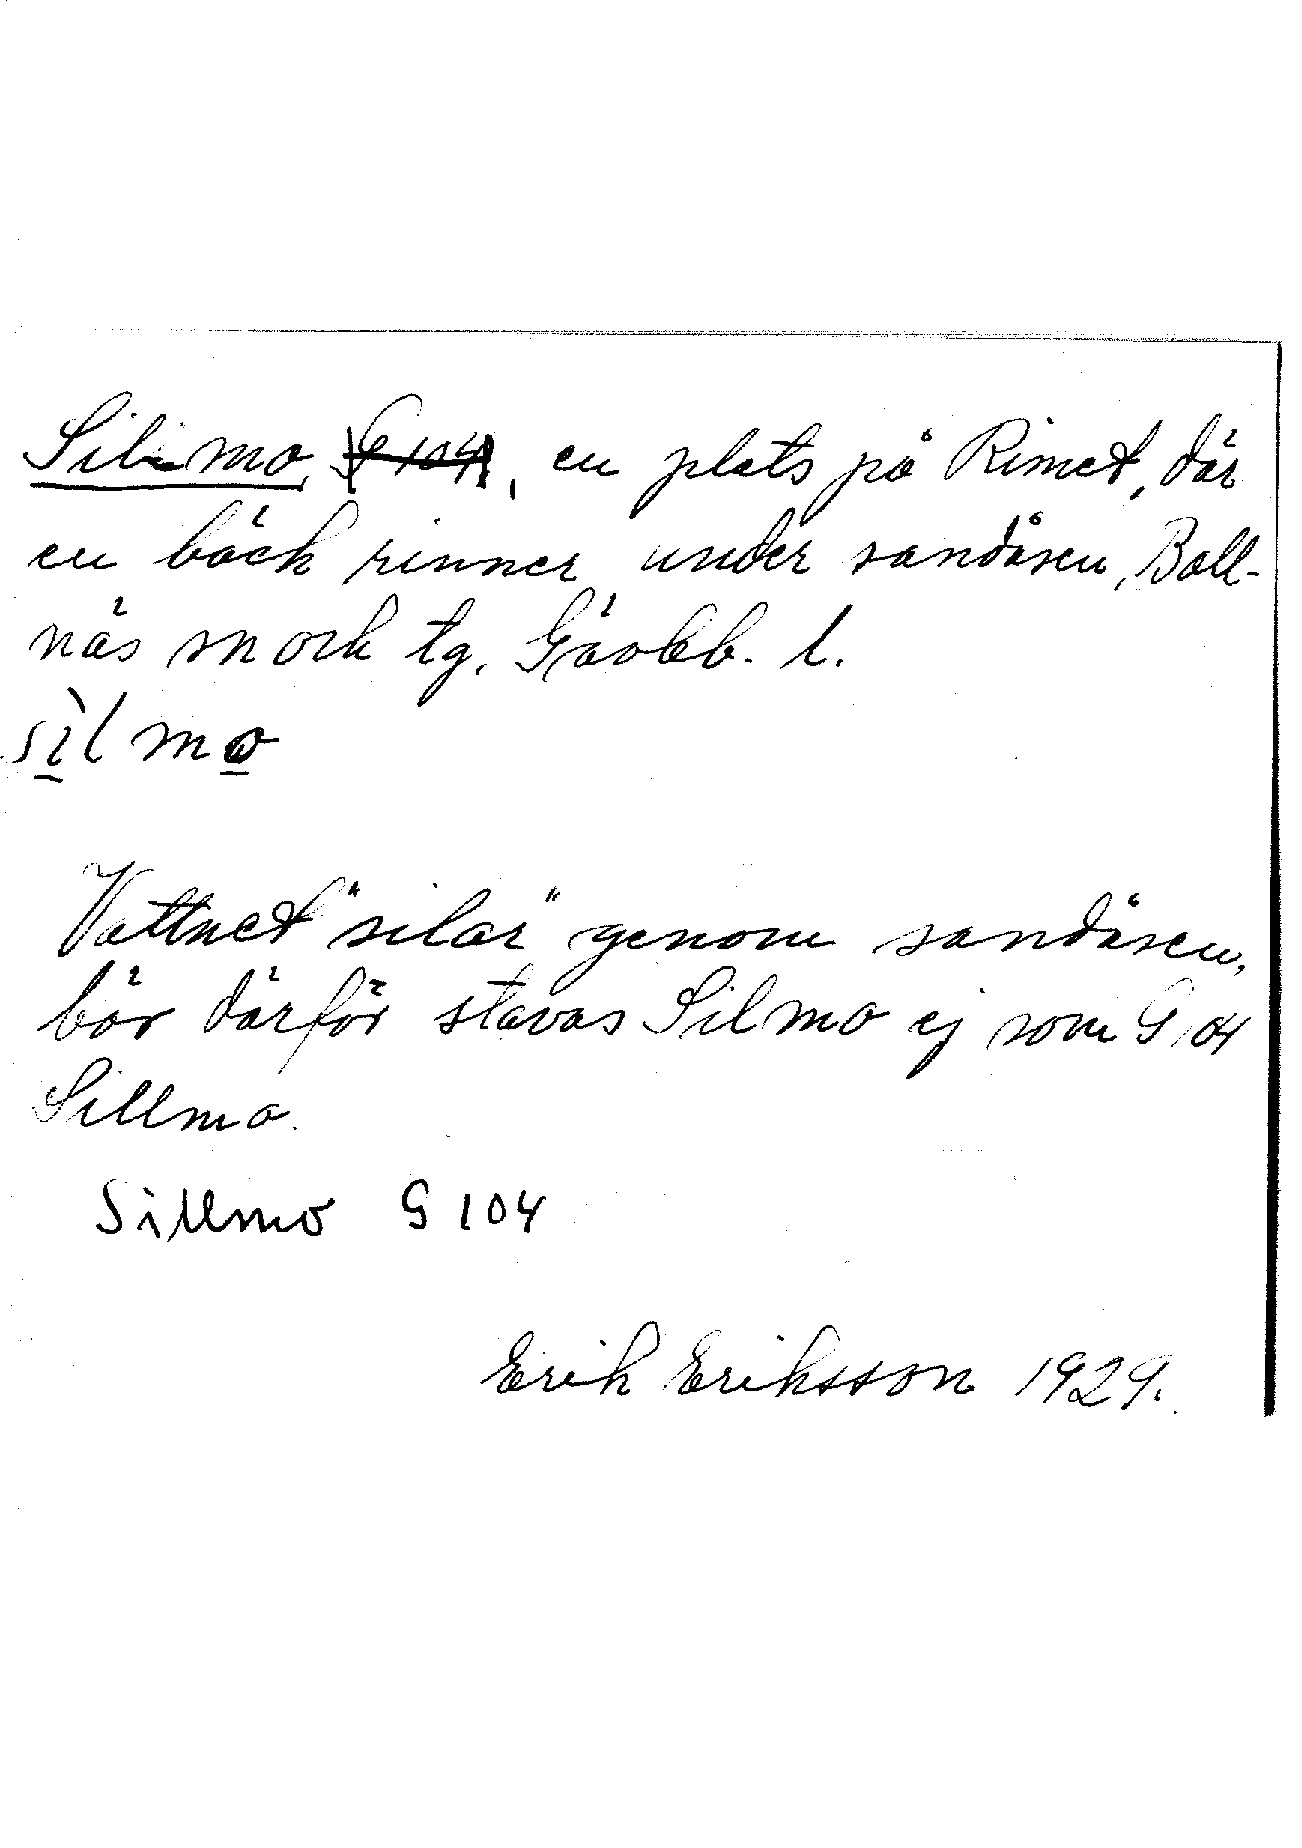 Silmo G 104, en plats på Rimet, där
en bäck rinner under sandåsen, Boll-
näs sn och tg. Gävleb. l.
sìlmo
Vattnet "silar" genom sandåsen,
bör därför stavas Silmo ej som G 104
Sillmo.
Sillmo G 104
Erik Eriksson 1929.